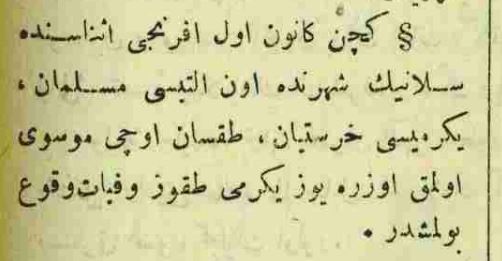 § كچن كانون اول افرنجى اثناسنده
سلانيك شهرنده اون التيسى مسلمان ،
يكرميسى خرستيان ، طقسان اوچى موسوى
اولمق اوزره يوز يكرمى طقوز وفيات وقوع
بولمشدر .